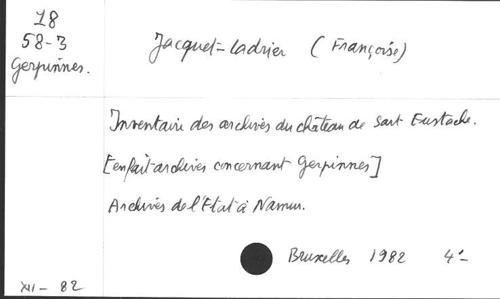 18
58-3
Gerpinnes.
Jacquet-Ladrier (Françoise)
Inventaire des archives du château de Sart Eustache.
[en fait archives concernant Gerpinnes]
Archives de l'Etat à Namur.
Bruxelles 1982 4°
XII - 82